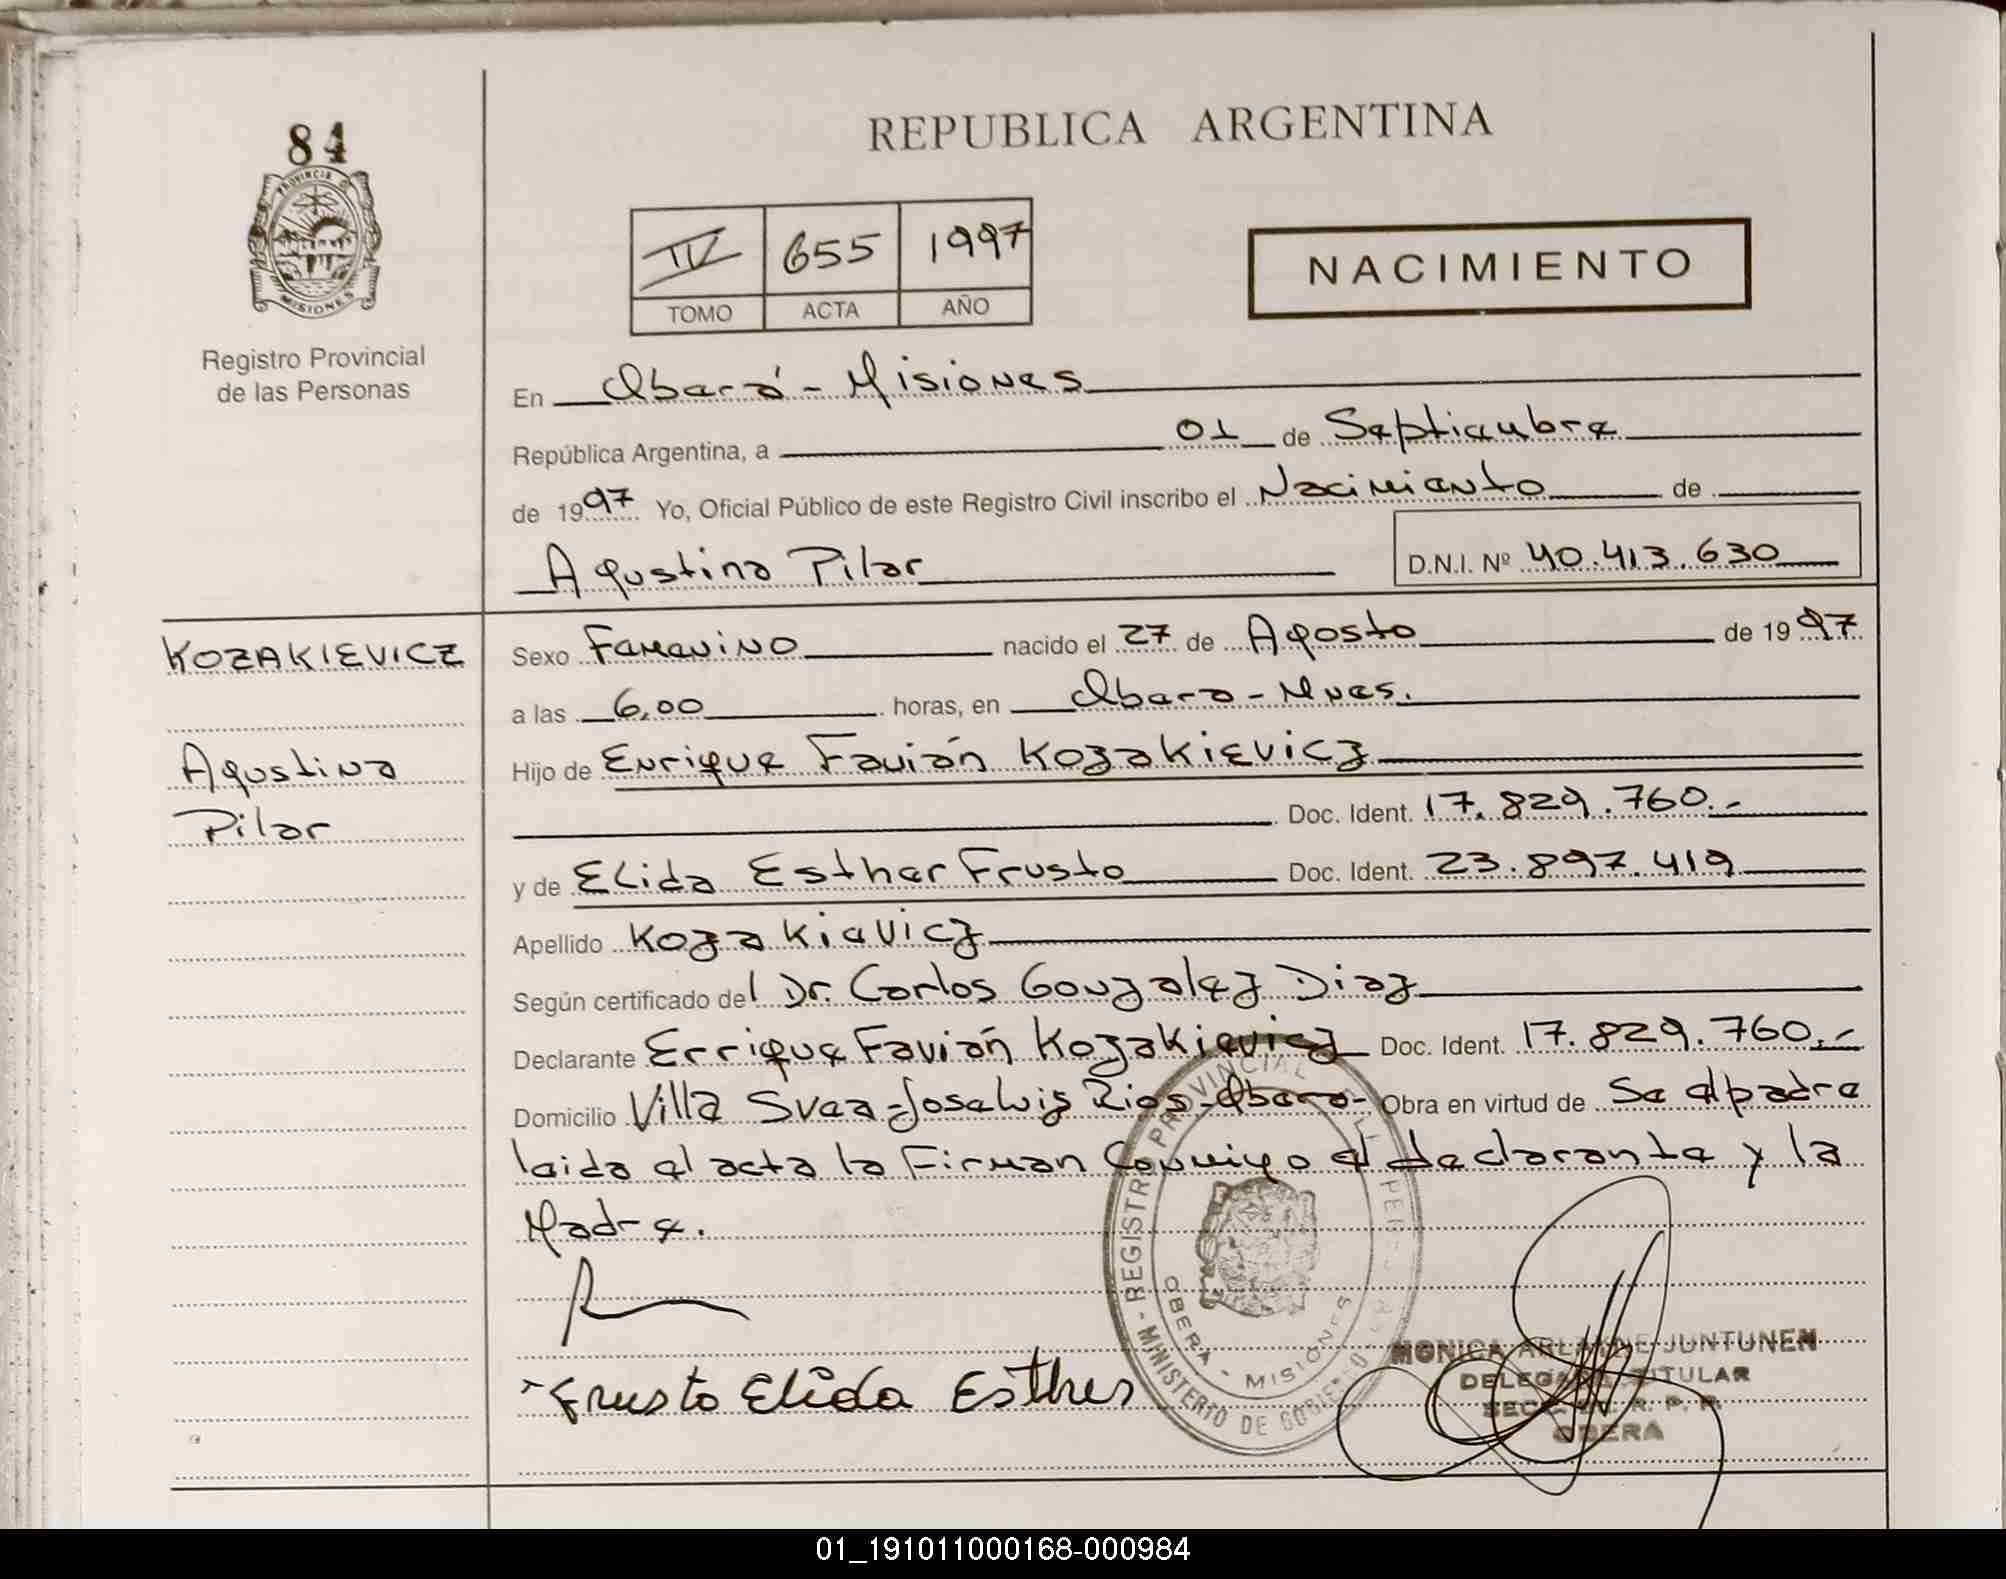 84
PROVINCIA D
MISIONES
Registro Provincial
de las Personas
REPUBLICA ARGENTINA
IV 655 1997
TOMO ACTA AÑO
NACIMIENTO
En Oberá - Misiones
República Argentina, a 01 de Septiembre
de 1997 Yo, Oficial Público de este Registro Civil inscribo el Nacimiento de
Agustina Pilar D.N.I. Nº 40.413.630
KOZAKIEVICZ
Agustina
Pilar
Sexo Femenino nacido el 27 de Agosto de 1997
a las 6,00 horas, en Obera - Mnes.
Hijo de Enrique Favián Kozakievicz
Doc. Ident. 17.829.760.-
y de Elida Esther Frusto Doc. Ident. 23.897.419
Apellido Kozakievicz
Según certificado del Dr. Carlos Gonzalez Diaz
Declarante Errique Favián Kozakievicz Doc. Ident. 17.829.760.-
Domicilio Villa Svea - Jose Luis Rios - Obera - Obra en virtud de Se el padre
leida el acta la Firman Conmigo el declarante y la
Madre.
Frusto Elida Esther
REGISTRO PROVINCIAL
OBERA - MISIONES
MINISTERIO DE GOBIERNO
MONICA ARLAYNE JUNTUNEN
DELEGADA TITULAR
SECC. R. P. P.
OBERA
01_191011000168-000984